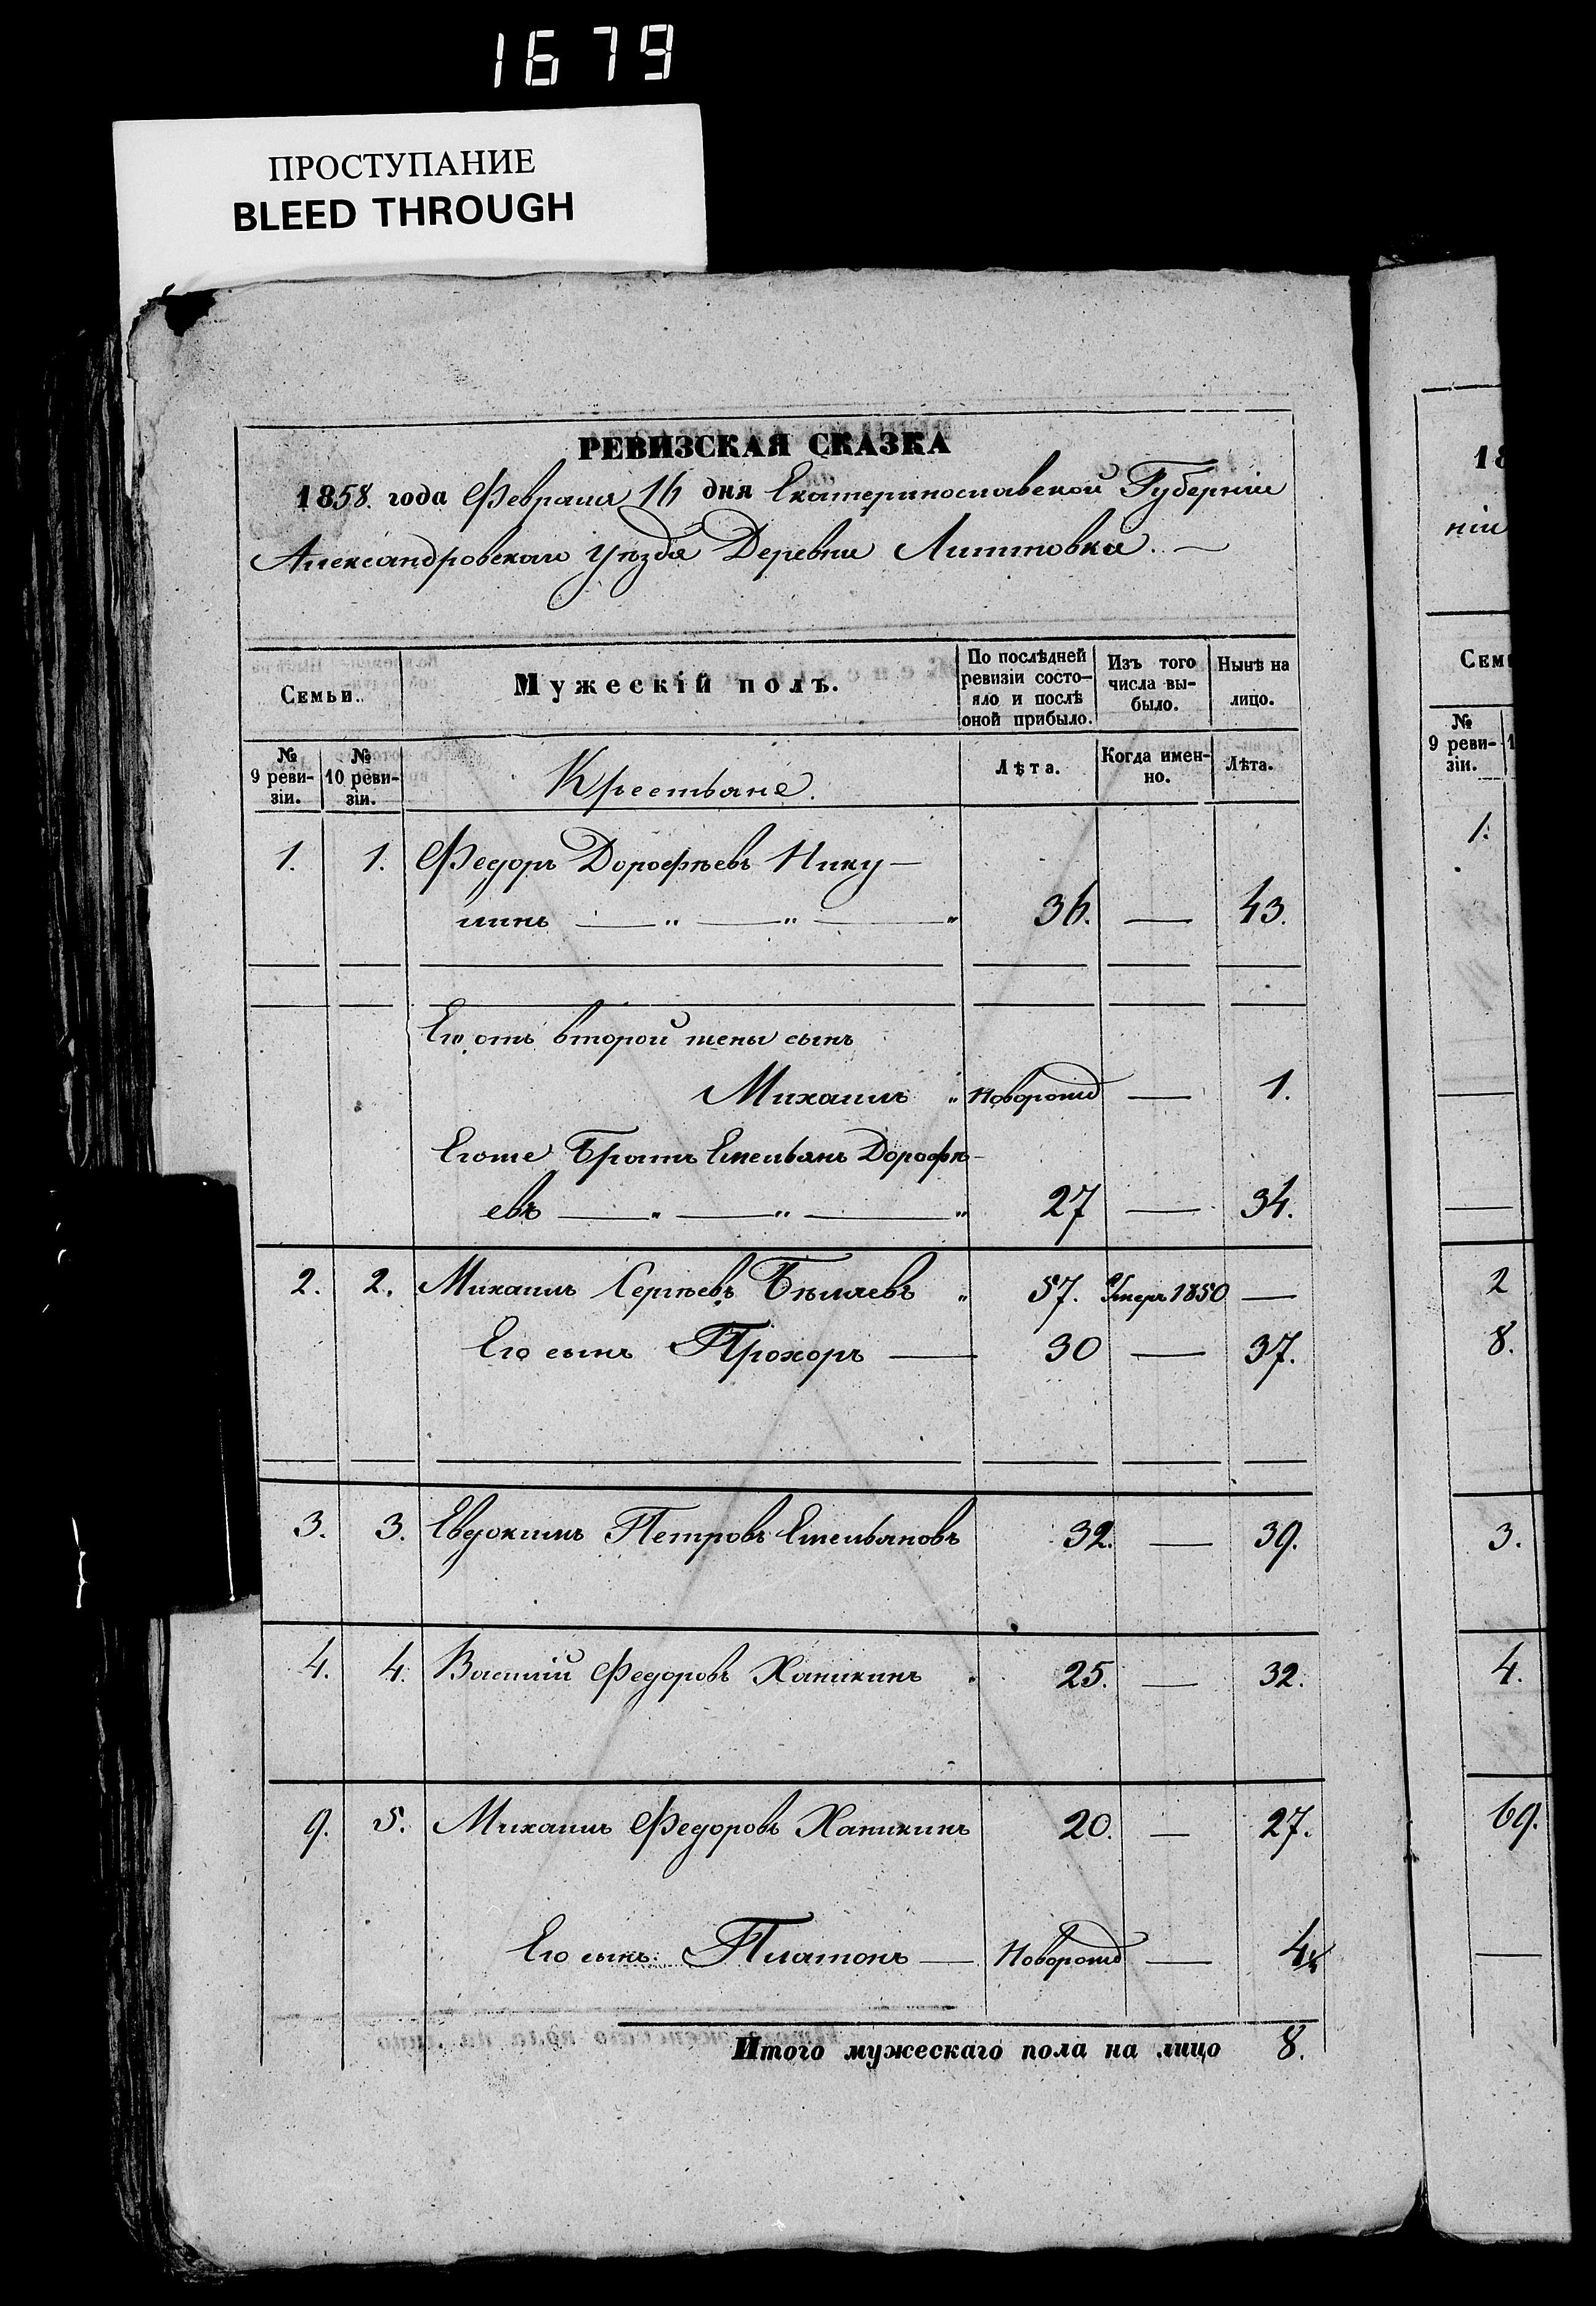 1679
ПРОСТУПАНИЕ
BLEED THROUGH
РЕВИЗСКАЯ СКАЗКА
1858. года Февраля 16 дня Екатеринославской Губерніи
Александровскаго уѣзда Деревни Литтовка.
Семьи.
Мужескій полъ.
По послѣдней ревизіи состо-
яло и послѣ
оной прибыло.
Изъ того
числа вы-
было.
Нынѣ на
лицо.
№
9 реви-
зіи.
№
10 реви-
зіи.
Крестьяне.
Лѣта.
Когда имен-
но.
Лѣта.
1. 1. Федоръ Дорофѣевъ Нику-
линъ — „ — „ — „ 36. — 43.
Его отъ второй жены сынъ
Михаилъ „ Новорожд — 1.
Егоже Братъ Емельянъ Дорофѣ-
евъ — „ — „ — „ 27 — 34.
2. 2. Михаилъ Сергѣевъ Бѣляевъ „ 57. Умеръ 1850 —
Его сынъ Прохоръ — 30 — 37.
3. 3. Евдокимъ Петровъ Емельяновъ 32. — 39.
4. 4. Василій Федоровъ Ханикинъ 25. — 32.
9. 5. Михаилъ Федоровъ Ханикинъ 20. — 27.
Его сынъ: Платонъ — Новорожд — 4
Итого мужескаго пола на лицо 8.
18
ніи
Сем
№
9 реви-
зіи.
1
1.
2
8.
3.
4.
69.